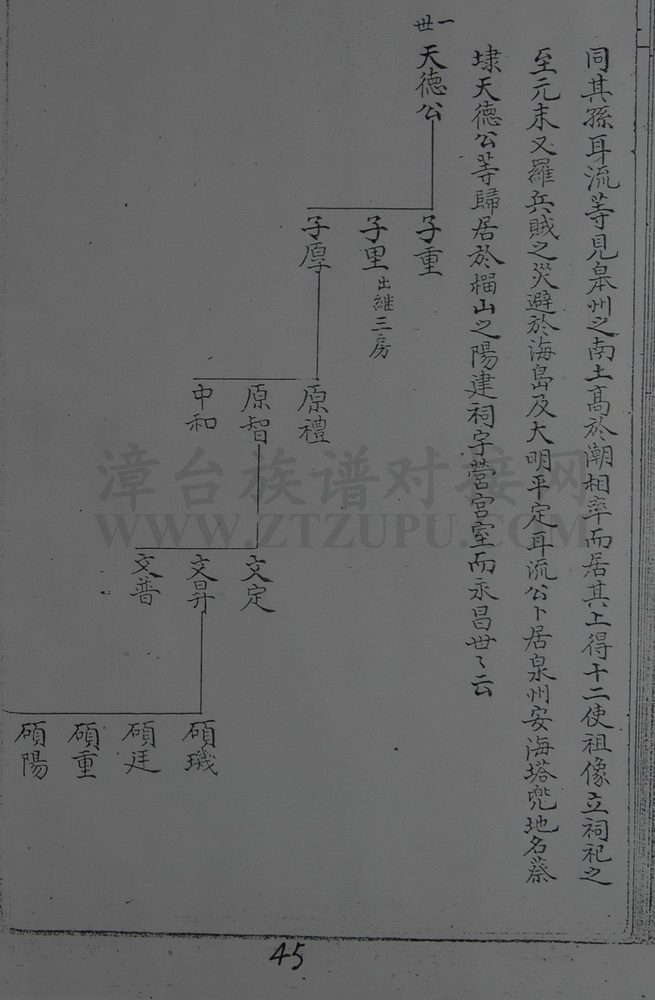 同其孫耳流等見皋州之南土高於潮相率而居其上得十二使祖像立祠祀之
至元末又羅兵賊之災避於海島及大明平定耳流公卜居泉州安海塔兜地名蔡
埭天德公等歸居於榴山之陽建祠宇營宮室而永昌世々云
一世
天德公
子重
子里 出繼三房
子厚
原禮
原智
中和
文定
文昇
文普
碩璣
碩廷
碩重
碩陽
漳台族谱对接网
WWW.ZTZUPU.COM
45